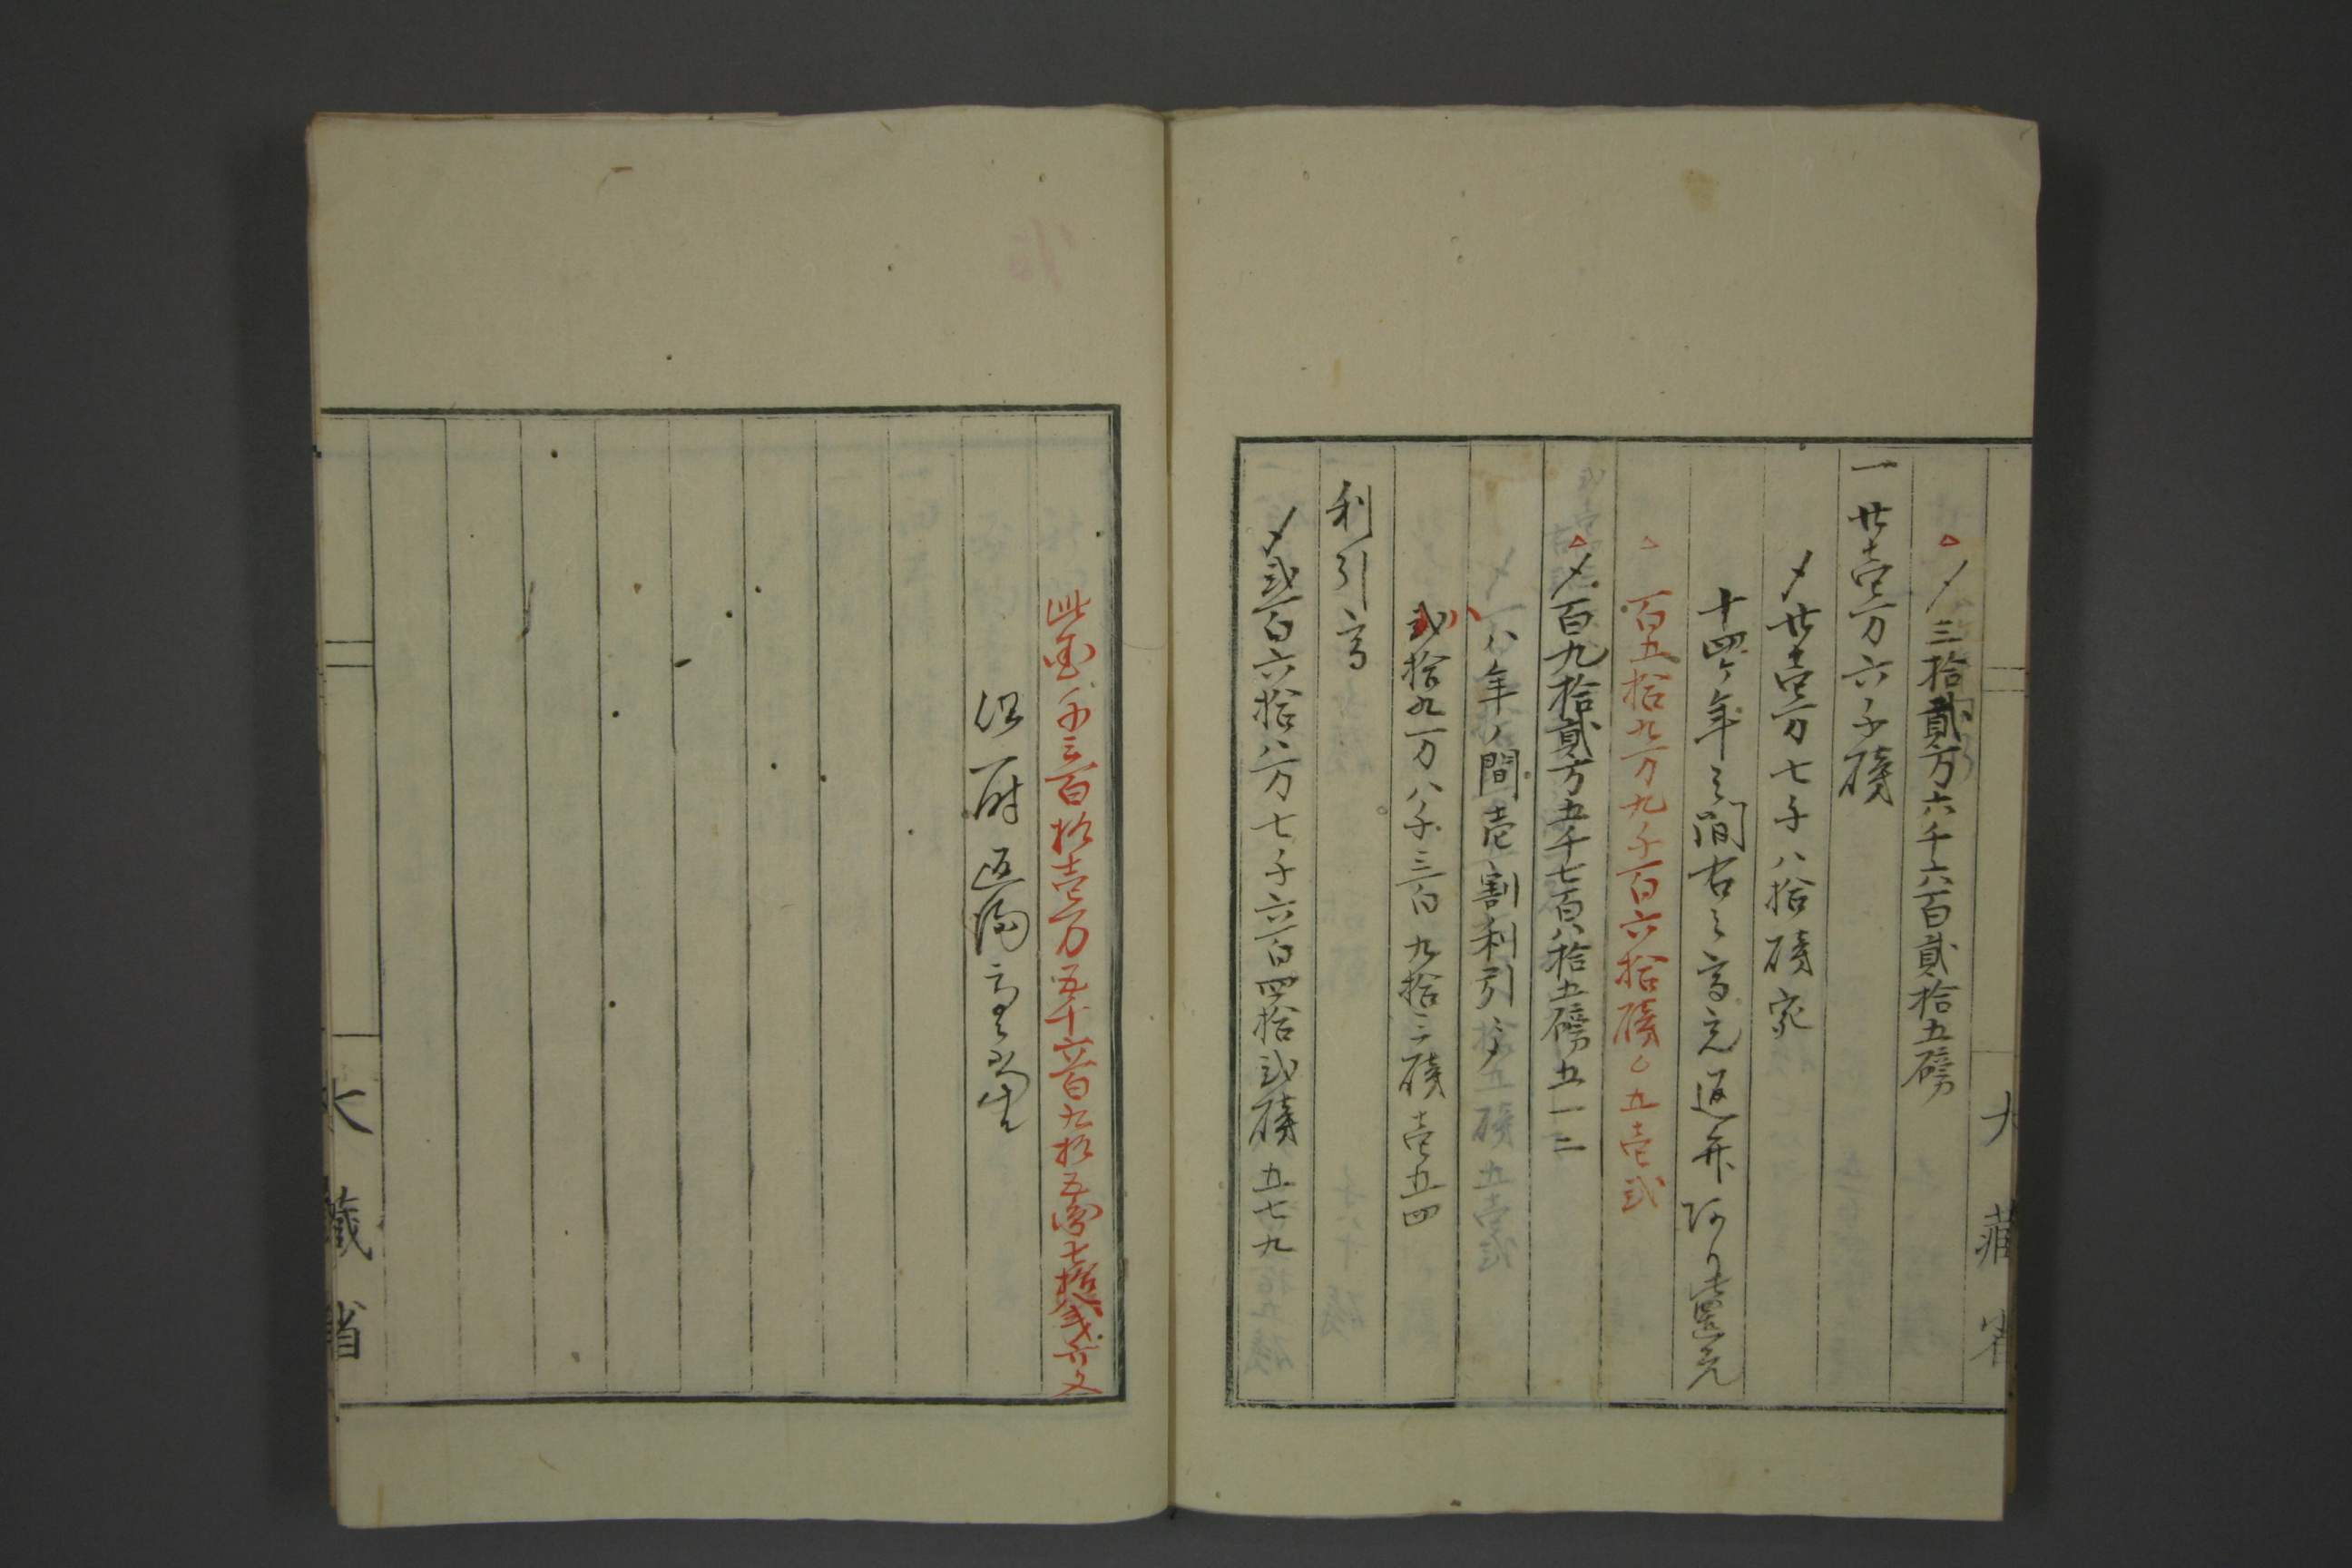 〆三拾貳万六千六百貳拾五磅
一廿壱万六千磅
〆廿壱万七千八拾磅
十四ケ年之間右之高元返并
百五拾九万九千百六拾磅〇五壱弐
〆百九拾貳万五千七百八拾五磅五一二
八年ノ間壱割利引〆
弐拾九万八千三百九拾三磅壱五四
利引高
〆弐百六拾八万七千六百四拾弐磅五七九
大藏省
此金千三百拾壱万五千六百九拾五両
但一時返済高
大藏省